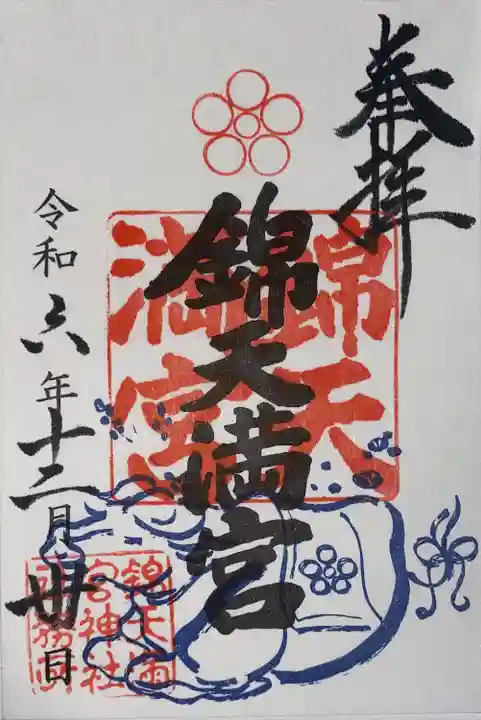 奉拝
錦天満宮
錦天
満宮
令和六年十二月廿日
錦天満
宮神社
社務所